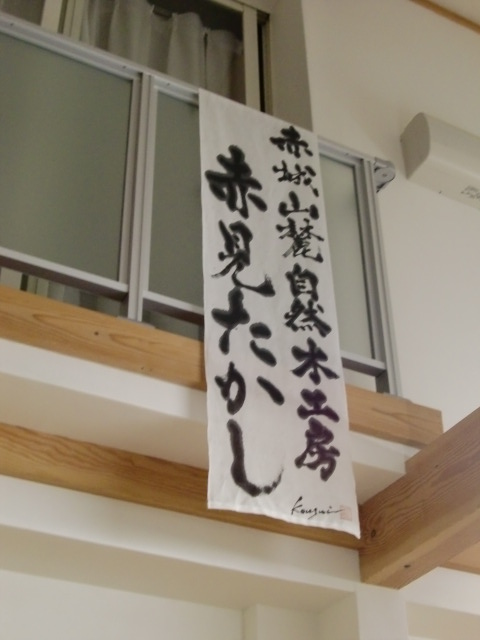 赤城山麓自然木工房
赤見たかし